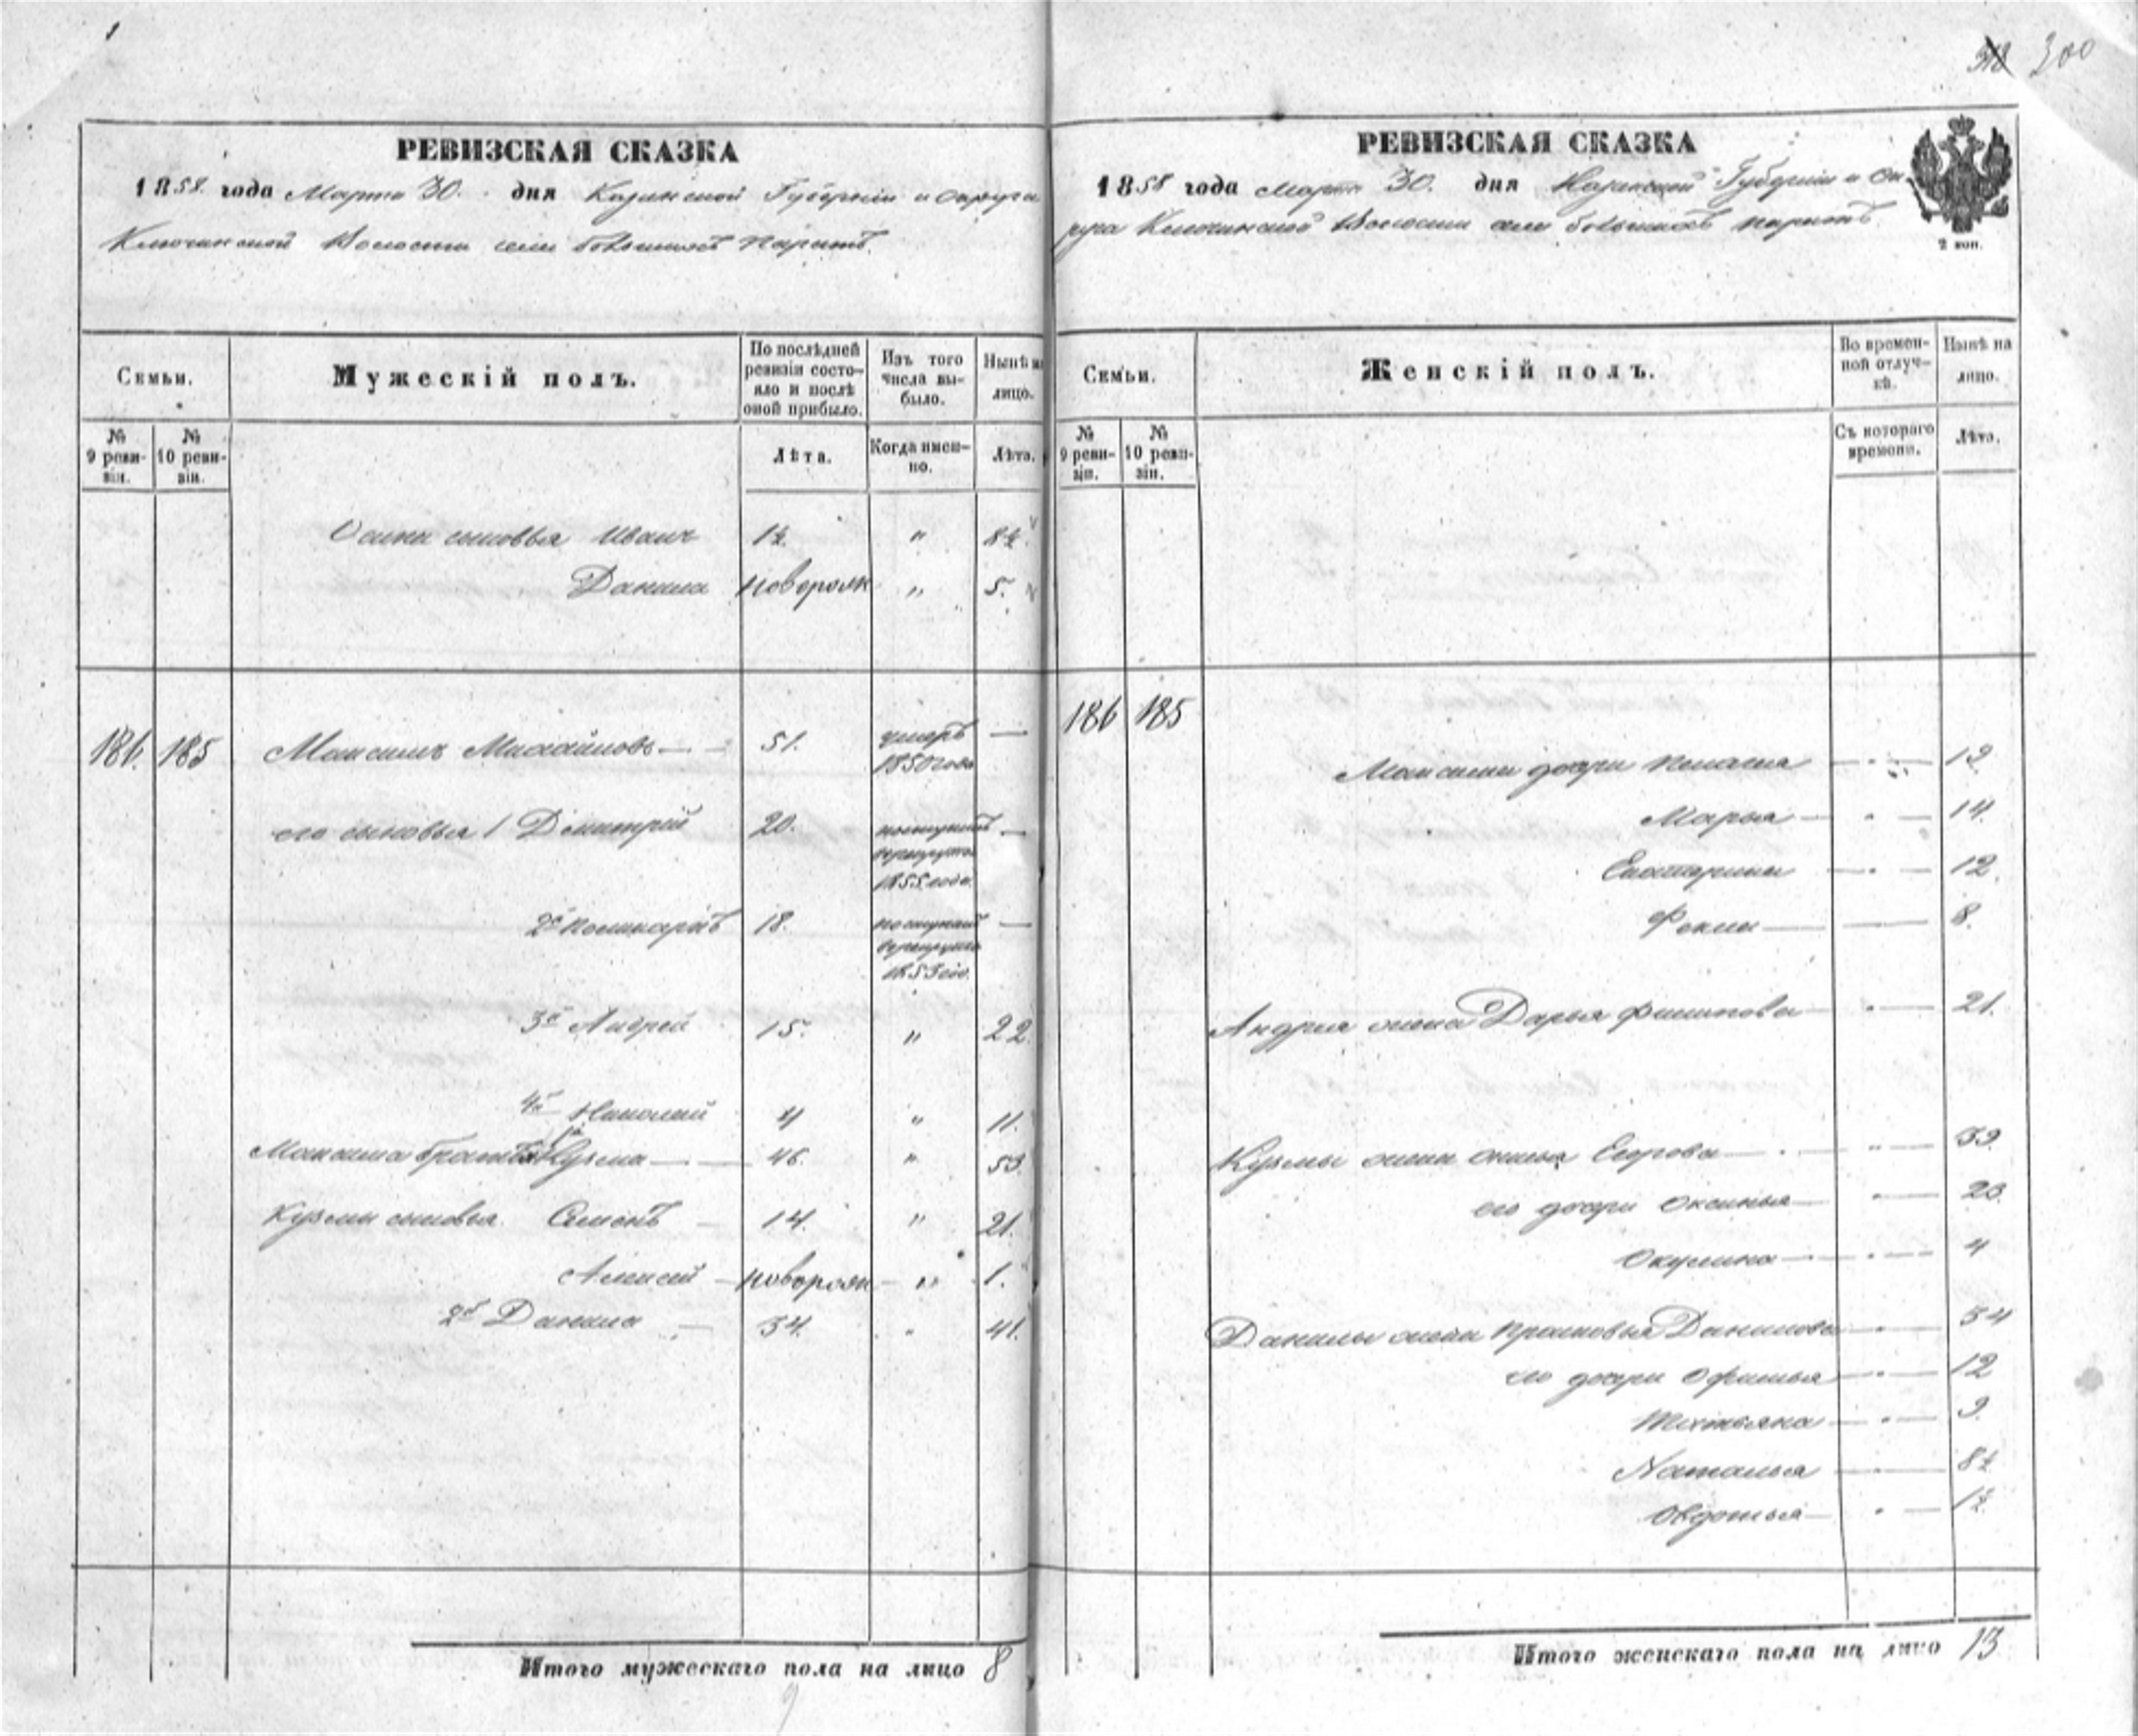 300
РЕВИЗСКАЯ СКАЗКА
1858 года Марта 30. дня Казанской Губернiи и округа
Ключинской Волости села большихъ
Семьи.
Мужескiй полъ.
По послѣдней ревизiи состо-
яло и послѣ
оной прибыло.
Изъ того
числа вы-
было.
Нынѣ на
лицо.
№
9 реви-
зiи.
№
10 реви-
зiи.
Лѣта.
Когда имен-
но.
Лѣта.
сыновья Иванъ 1½ " 8½
Данила новорож " 5.
186. 185 Максимъ Михайловъ 51. умеръ —
1850 года
его сыновья 1 Дмитрiй 20. поступилъ —
врекруты
1855 года
2й Поликарпъ 18. поступилъ —
врекруты
1853 год.
3й Андрей 15. " 22
4й Николай 4 " 11.
Максима братья 1й Кузма 46. " 53.
Кузмы сыновья Семенъ 14. " 21.
Алексей новорож " 1.
2й Данила 34. " 41.
Итого мужескаго пола на лицо 8
9
РЕВИЗСКАЯ СКАЗКА
1858 года Марта 30. дня Казанской Губернiи и ок-
руга Ключинской Волости села большихъ
2 коп.
Семьи.
Женскiй полъ.
Во времен-
ной отлуч-
кѣ.
Нынѣ на
лицо.
№
9 реви-
зiи.
№
10 реви-
зiи.
Съ котораго
времени.
Лѣта.
186 185
Максима дочери Пелагея 19
Марья 14.
Екатерина 12.
Фекла 8.
Андрея жена Дарья Филипова 21.
Кузмы жена Егорова
его дочери Оксинья
Окулина 4
Данилы жена Прасковья Данилова 34
его дочери Офимья 12
Татьяна 9.
Наталья 8½
Овдотья 1½
Итого женскаго пола на лицо 13